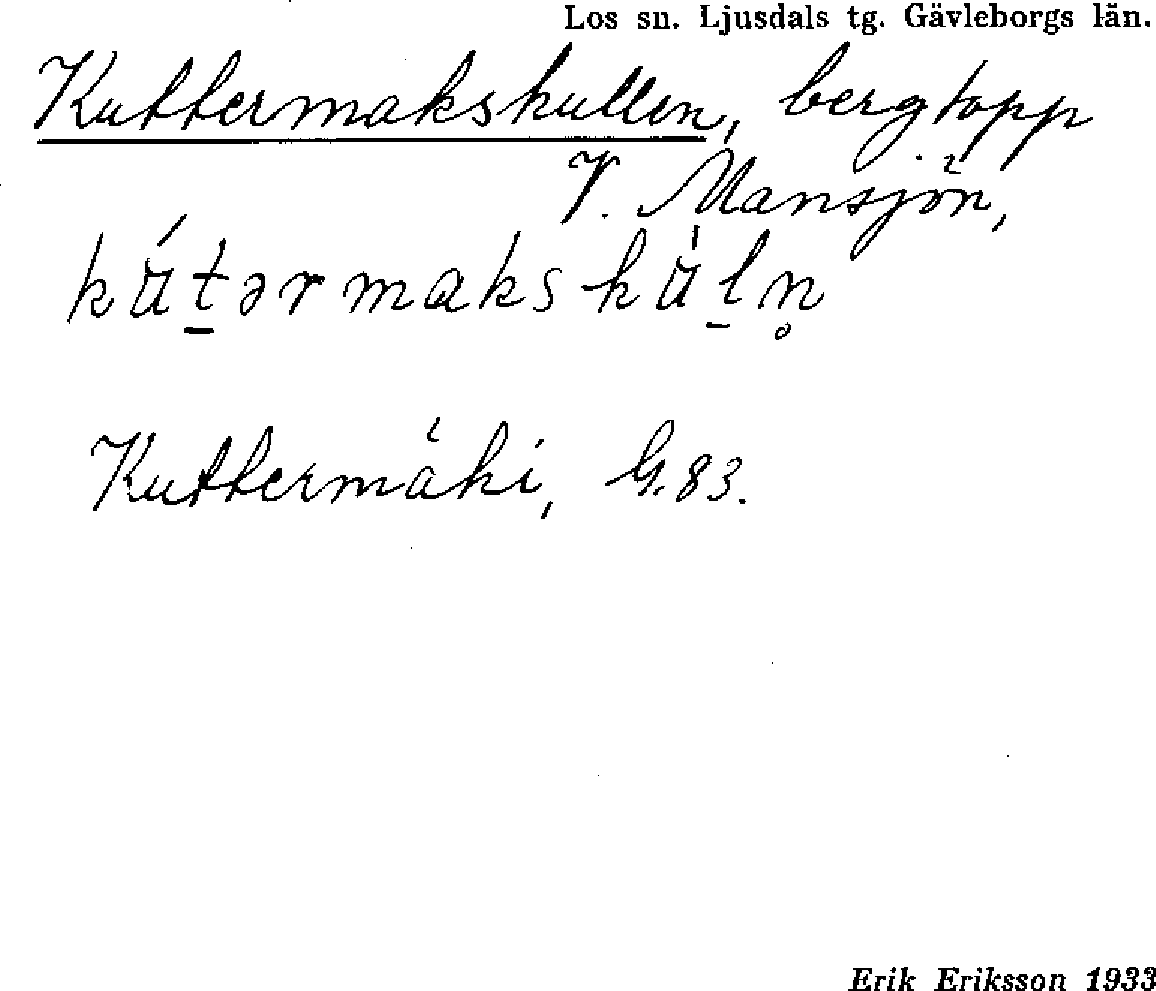 Los sn. Ljusdals tg. Gävleborgs län.
Kuttermakskullen, bergtopp
V. Mansjön,
kú̆t̠ərmakskù̆l̠n̥
Kuttermäki, G. 83.
Erik Eriksson 1933